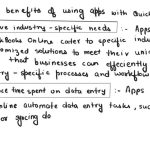 benefits of using apps with Quick
ve industry-specific needs :- Apps
kBooks Online cater to specific indus
omized solutions to meet their uni
that businesses can efficiently
ry-specific processes and workflow
ce time spent on data entry :- Apps
nline automate data entry tasks, suc
or